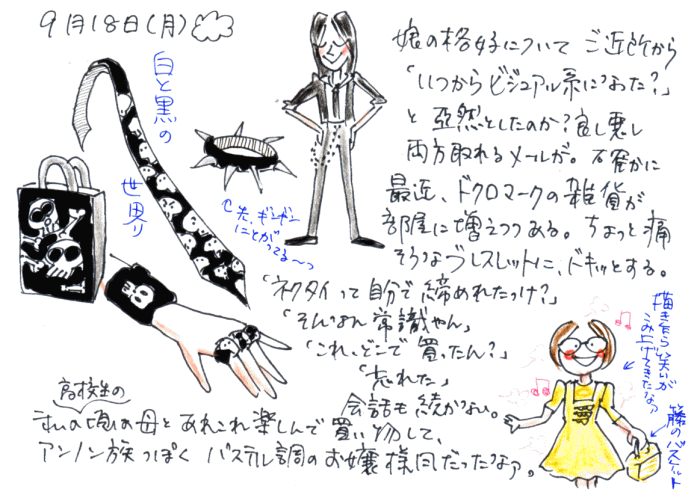 9月18日(月)
白と黒の
世界
先、ギンギン
にとがってる〜っ
娘の格好について ご近所から
「いつからビジュアル系になった?」
と 亜然としたのか?良し悪し
両方取れるメールが。確かに
最近、ドクロマークの雑貨が
部屋に増えつつある。ちょっと痛
そうなブレスレットに、ドキッとする。
「ネクタイって自分で締めれたっけ?」
「そんなん常識やん」
「これ、どこで買ったん?」
「忘れた」
会話も続かない。
高校生の
私の頃は母とあれこれ楽しんで買い物して、
アンノン族っぽく パステル調のお嬢様風だったなァ。
描きながら笑いが
こみ上げてきたなァ
籐のバスケット